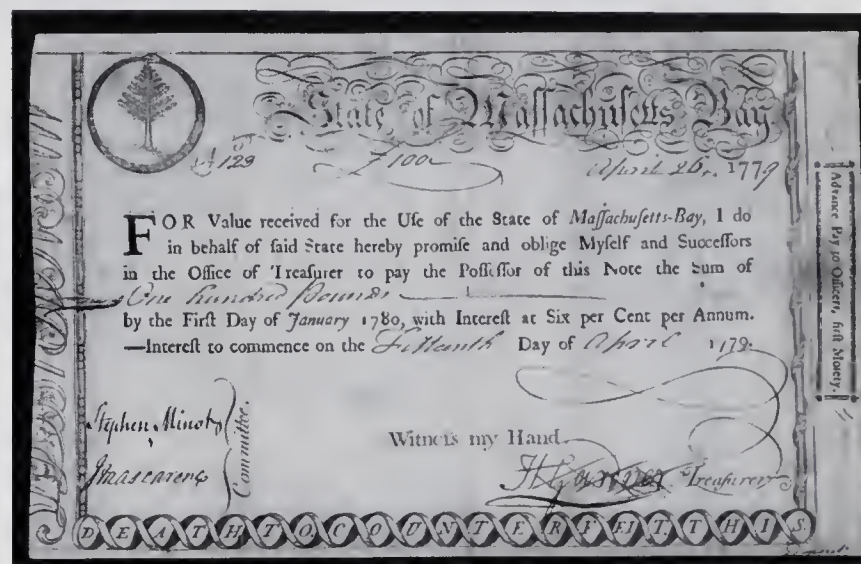 State of Massachusetts Bay
№ 129 £100 April 26, 1779
FOR Value received for the Uſe of the State of Maſſachuſetts-Bay, I do
in behalf of ſaid State hereby promiſe and oblige Myſelf and Succeſſors
in the Office of Treaſurer to pay the Poſſeſſor of this Note the Sum of
One Hundred Pounds
by the Firſt Day of January 1780, with Intereſt at Six per Cent per Annum.
—Intereſt to commence on the Day of April 1779.
Stephen Minot
Committee.
Witneſs my Hand
Treaſurer
DEATH.TO.COUNTERFEIT.THIS.
Advance Pay to Officers, firſt Moiety.